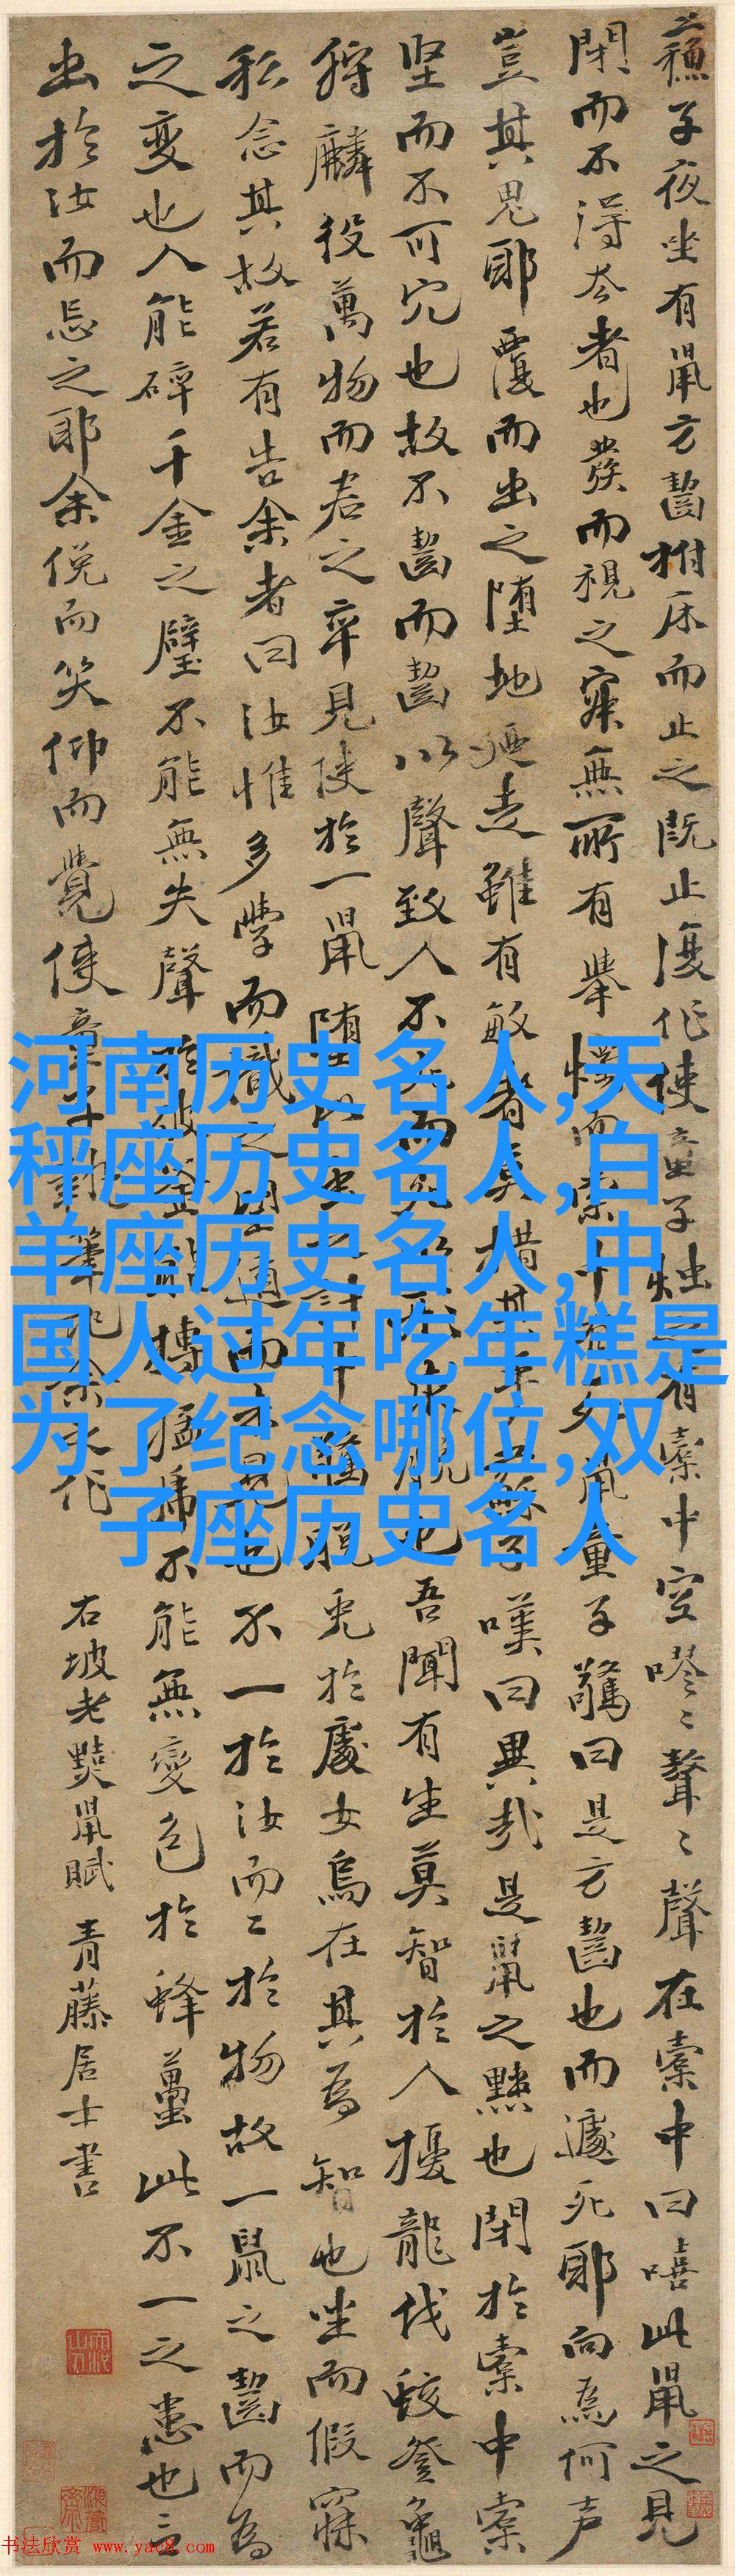 蘓子夜坐有鼠方齧拊床而止之既止復作使童子燭之有橐中空嘐〻聱〻聲在橐中曰嘻此鼠之見
閉而不得去者也發而視之寂無所有舉燭而索中有死鼠童子驚曰是方齧也而遽死耶向為何声
豈其鬼耶覆而出之堕地走雖有敏者莫措其手蘇子嘆曰異哉是鼠之黠也閉於橐中橐
坚而不可穴也故不齧而齧以聲致人不死而死以形求脱也吾聞有生莫智於人擾龍伐蛟登龜
狩麟役萬物而君之卒見使於一鼠堕此虫之計中驚脱兎於處女烏在其為智也坐而假寐
私念其故若有告余者曰汝惟多學而識之望道而未見也不一於汝而二於物故一鼠之齧而為
之變也人能碎千金之璧不能無失聲於破釜能搏猛虎不能無變色於蜂蠆此不一之患也言
出於汝而忘之耶余俛而笑仰而覺使童子執筆記余之作
右坡老黠鼠賦 青藤居士書
河南历史名人,天
秤座历史名人,白
羊座历史名人,中
国人过年吃年糕是
为了纪念哪位,双
子座历史名人
书法欣赏 www.yac8.com